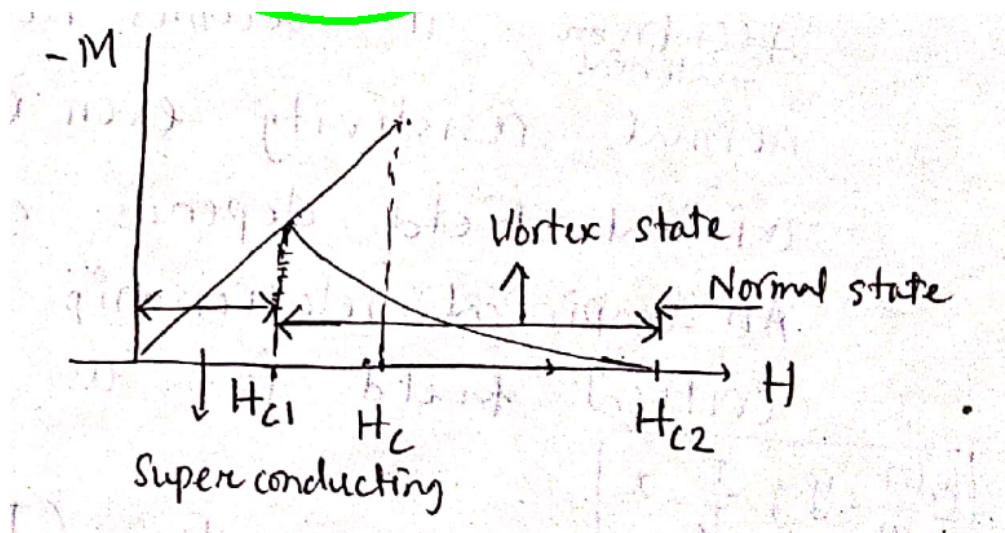 -M
Vortex state
Normal state
H
H_{C1}
H_C
H_{C2}
Super conducting